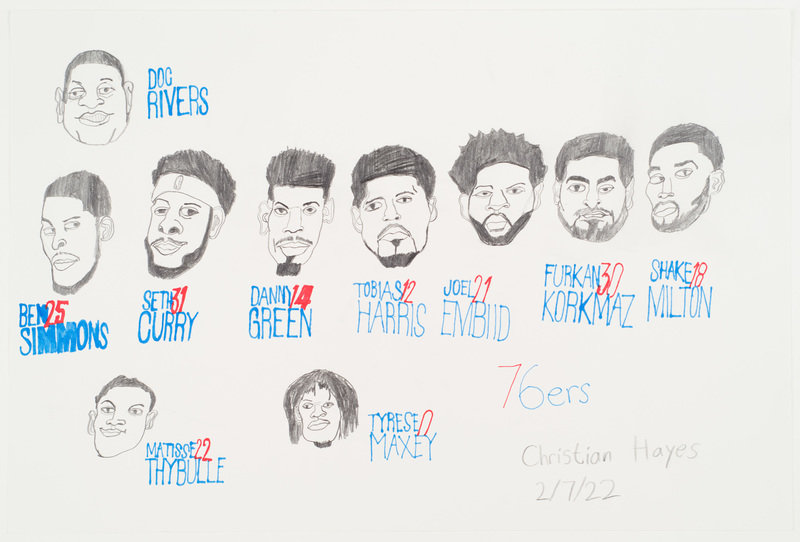 DOC
RIVERS
BEN 25
SIMMONS
SETH 31
CURRY
DANNY 14
GREEN
TOBIAS 12
HARRIS
JOEL 21
EMBIID
FURKAN 30
KORKMAZ
SHAKE 18
MILTON
MATISSE 22
THYBULLE
TYRESE 0
MAXEY
76ers
Christian Hayes
2/7/22